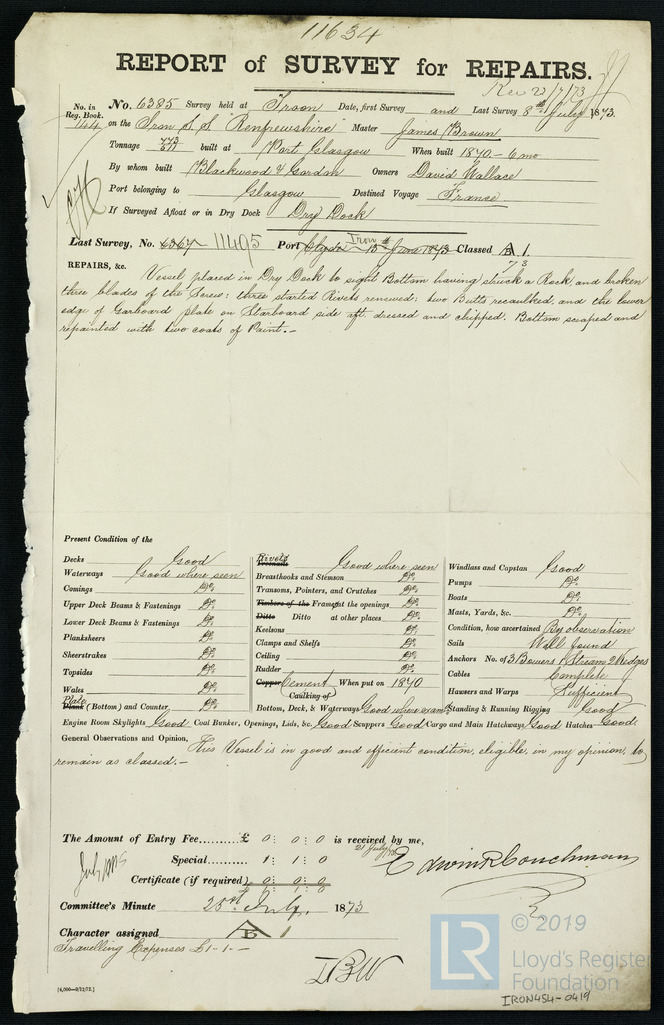 11634
REPORT of SURVEY for REPAIRS.
Rec 22/7/73
No. in Reg. Book. No. 6385 Survey held at Troon Date, first Survey and Last Survey 8th July 1873.
on the Iron S.S. "Renfrewshire" Master James Brown
Tonnage built at Port Glasgow When built 1870 - 6 mo
By whom built Blackwood & Gordon Owners David Wallace
Port belonging to Glasgow Destined Voyage France
If Surveyed Afloat or in Dry Dock Dry Dock
Last Survey, No. 11495 Port Clyde Iron 13th June 1873 Classed A 1.
73
REPAIRS, &c. Vessel placed in Dry Dock to sight Bottom having struck a Rock, and broken
three blades of the Screw: three started Rivets renewed: two Butts recaulked, and the lower
edge of Garboard plate on Starboard side aft. dressed and chipped. Bottom scraped and
repainted with two coats of Paint.-
Present Condition of the
Decks Good
Waterways Good where seen
Comings Do.
Upper Deck Beams & Fastenings Do.
Lower Deck Beams & Fastenings Do.
Planksheers Do.
Sheerstrakes Do.
Topsides Do.
Wales Do.
Plate
Plank (Bottom) and Counter Do.
Rivets
Treenails Good where seen
Breasthooks and Stemson Do.
Transoms, Pointers, and Crutches Do.
Timbers of the Frame at the openings Do.
Ditto Ditto at other places Do.
Keelsons Do.
Clamps and Shelfs Do.
Ceiling Do.
Rudder Do.
Copper Cement When put on 1870
Caulking of
Bottom, Deck, & Waterways Good where exam.d
Windlass and Capstan Good
Pumps Do.
Boats Do.
Masts, Yards, &c. Do.
Condition, how ascertained By observation
Sails Well found
Anchors No. of 3 Bowers 1 Stream 2 Kedges
Cables Complete
Hawsers and Warps Sufficient
Standing & Running Rigging Good
Engine Room Skylights Good Coal Bunker, Openings, Lids, &c. Good Scuppers Good Cargo and Main Hatchways Good Hatches Good
General Observations and Opinion, This Vessel is in good and efficient condition, eligible, in my opinion, to
remain as classed.-
The Amount of Entry Fee......... £ 0 : 0 : 0 is received by me,
21 July /73
Special......... 1 : 1 : 0
Edwin R Couchman
Certificate (if required) 0 : 0 : 0
Committee's Minute 25th July, 1873
Character assigned A 1
Travelling Expenses £1-1-
[4,000—2/12/72.]
LR
© 2019
Lloyd's Register
Foundation
IRON454-0419